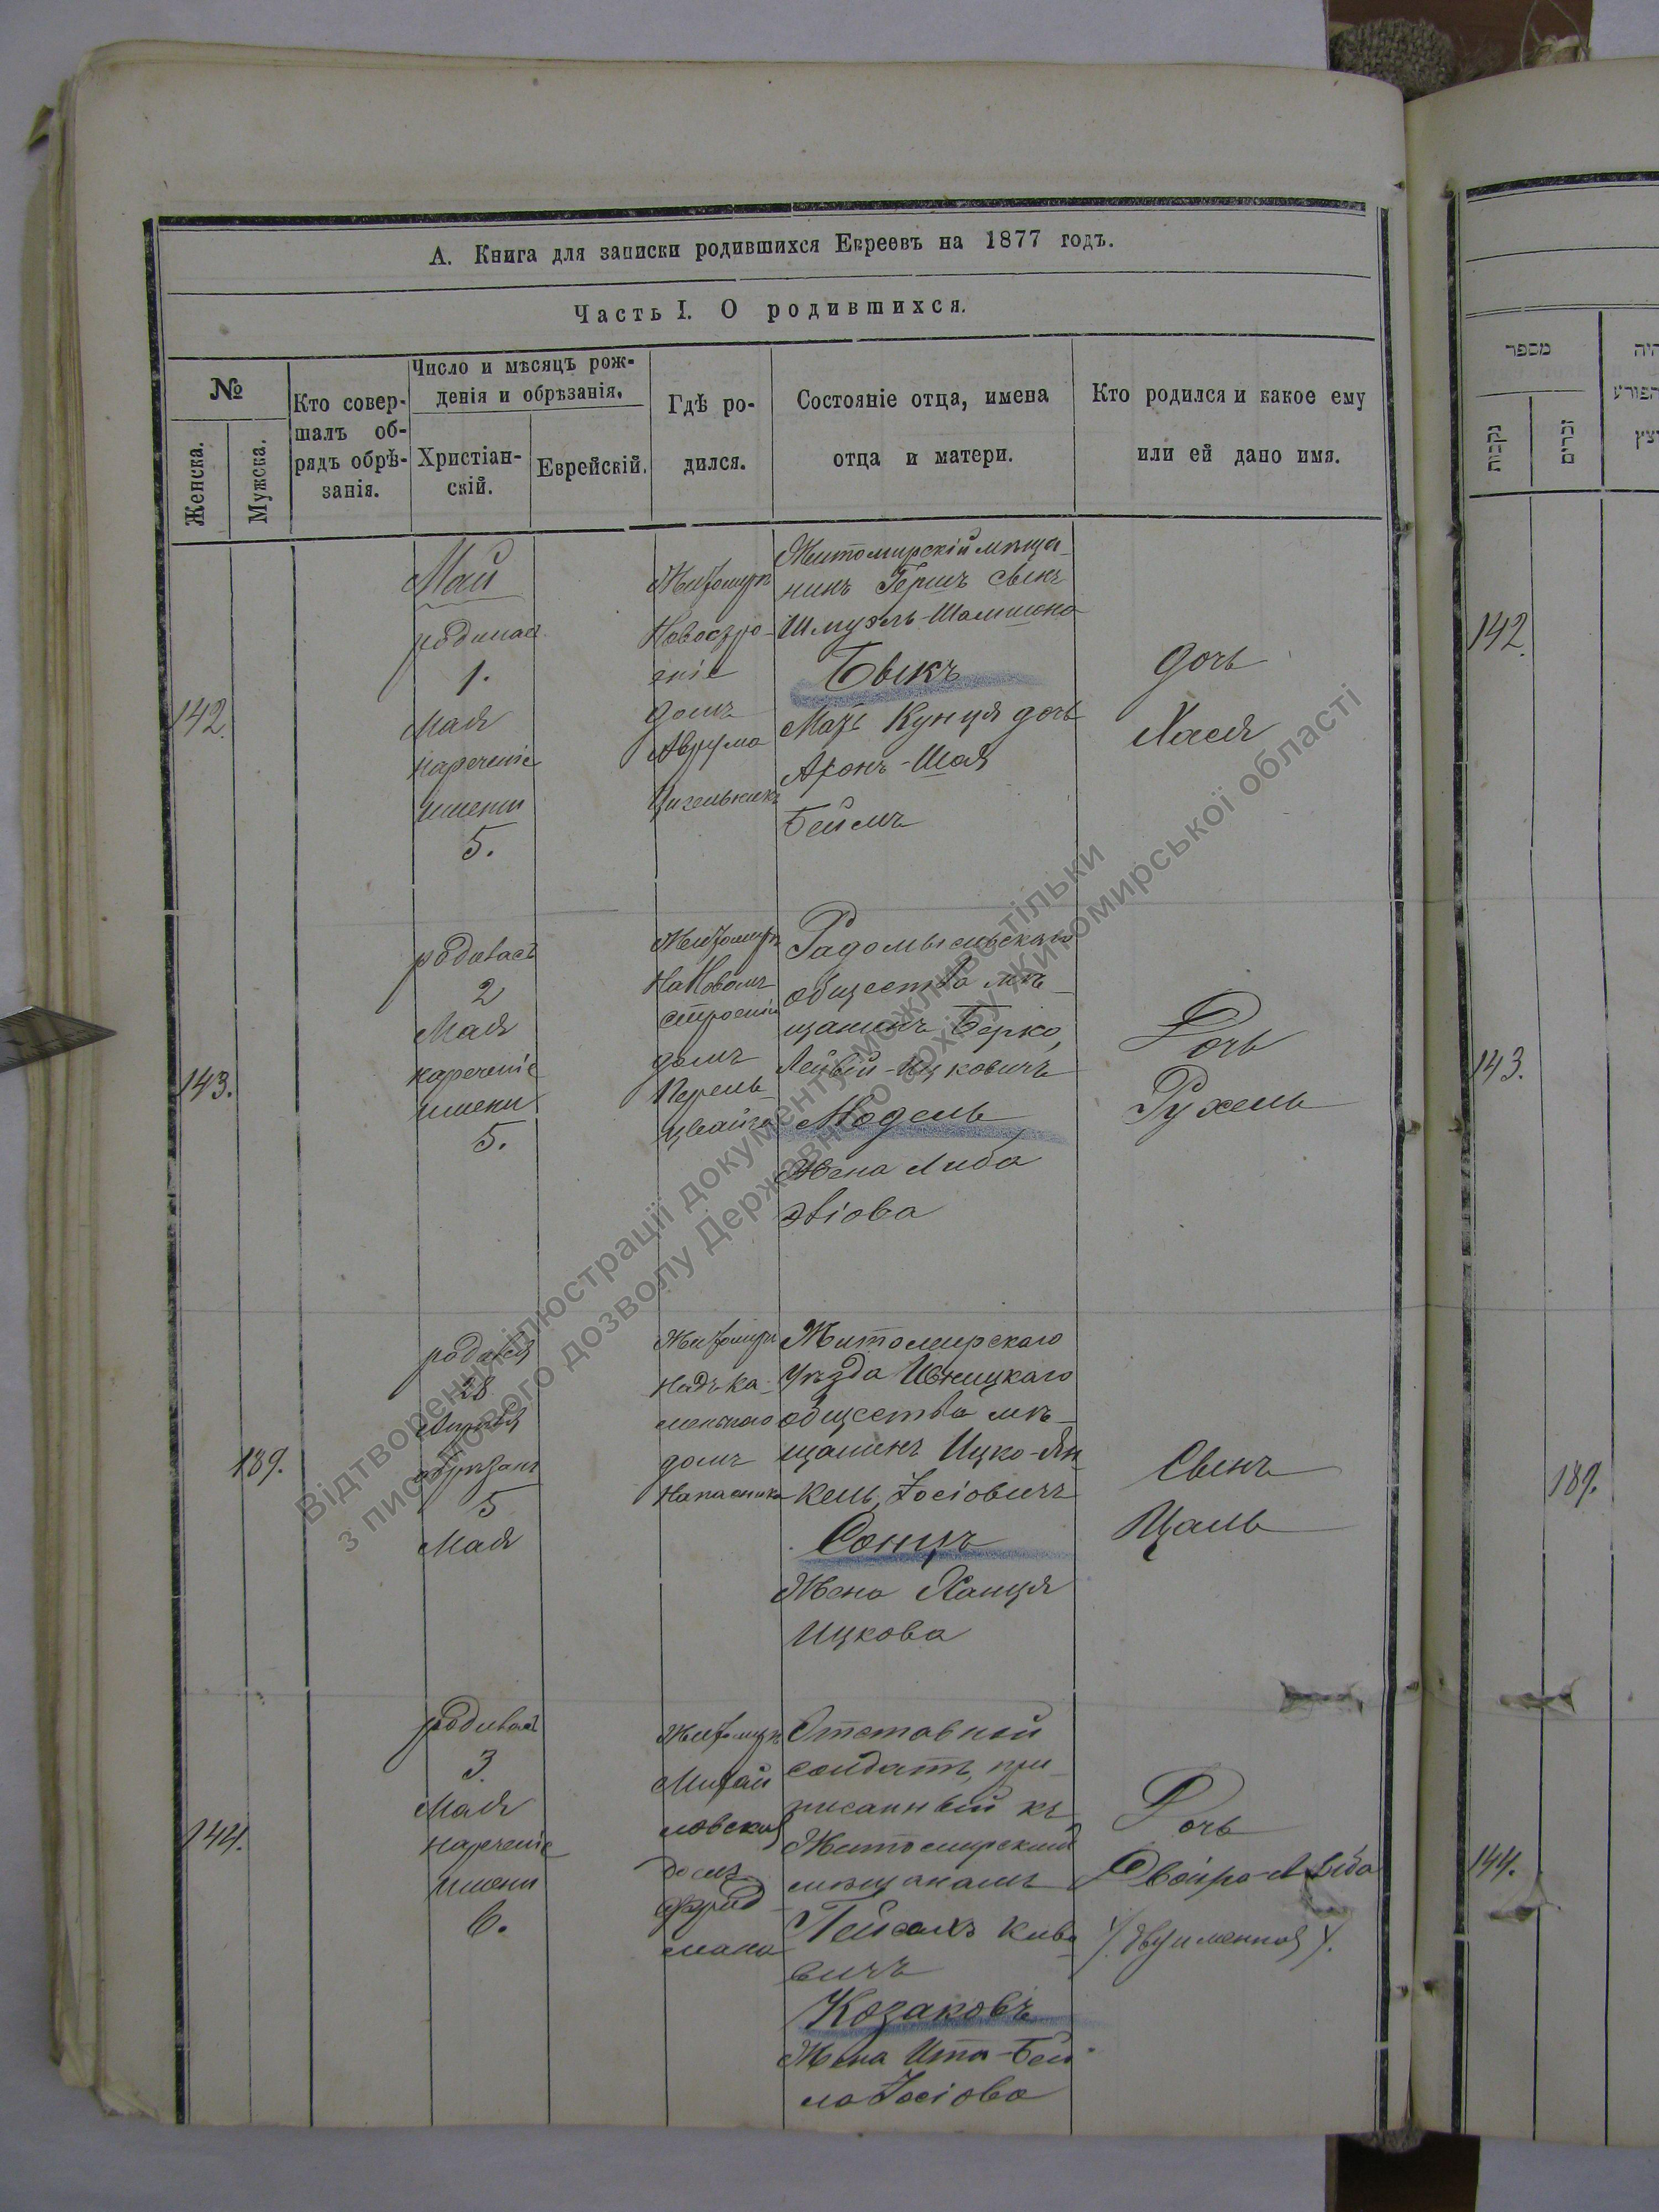 А. Книга для записки родившихся Евреевъ на 1877 годъ.
Часть I. О родившихся.
№
Женска.
Мужска.
Кто совер-
шалъ об-
рядъ обрѣ-
занія.
Число и мѣсяцъ рож-
денія и обрѣзанія.
Христіан-
скій.
Еврейскій.
Гдѣ ро-
дился.
Состояніе отца, имена
отца и матери.
Кто родился и какое ему
или ей дано имя.
142.
Май
родилась
1.
Мая
нареченіе
имени
5.
Житомиръ
Новострое
ніе
домъ
Аврума
Житомирскій мѣща-
нинъ Гершъ сынъ
Шмуэль-Шамшона
Быкъ
Мать Кунця дочь
Аронъ-Шая
Беймъ
дочь
Хася
143.
родилась
2
Мая
нареченіе
имени
5.
Житомиръ
На Новомъ
строеніи
домъ
Перель-
цвайга
Радомысльскаго
общества мѣ-
щанинъ Берко
Лейвій-Ицковичъ
Модель
Жена Либа
Дочь
Рухель
189.
родился
28
Апрѣля
обрѣзанъ
5
Мая
Житомиръ
Надъ Ка-
менкаго
домъ
Житомирскаго
Уѣзда Ивницкаго
общества мѣ-
щанинъ Ицко-Ян-
кель Іосіовичъ
Сонцъ
Жена Ханця
Ицкова
Сынъ
Цаль
144.
родилась
3.
Мая
нареченіе
имени
6.
Житомиръ
Михай
ловская
домъ
Фрид-
мана
Отставной
солдатъ, при-
писанный къ
Житомирскимъ
мѣщанамъ
Пейсахъ Киво-
вичъ
Козаковъ
Жена Ита-Бей-
ла Іосіова
Дочь
Двойра-Либа
/. двуименная /.
מספר
נקבות
זכרים
142.
143.
189.
144.
Відтворення ілюстрації документу можливо тільки
з письмового дозволу Державного архіву Житомирської області